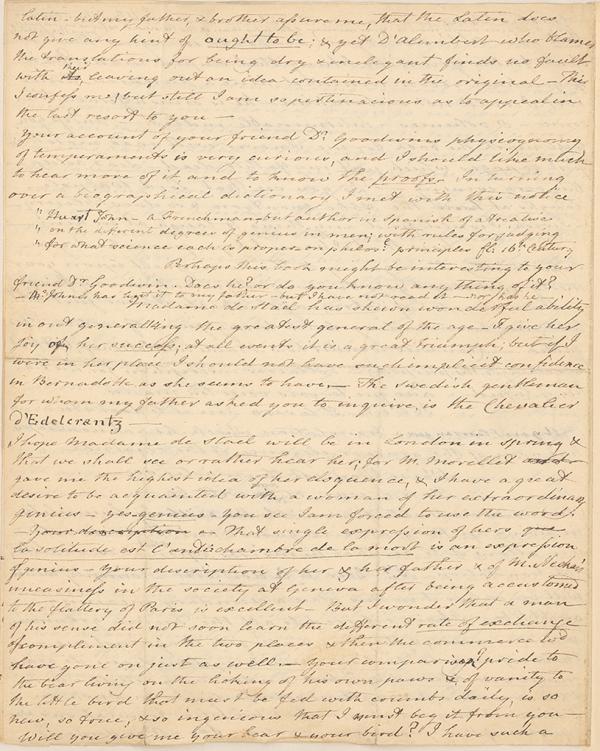 Latin - but my father, & brother assure me, that the Latin does
not give any hint of ought to be; & yet D'Alembert who blames
the translations for being dry & inelegant finds no fault
with their leaving out an idea contained in the original - This
I confess me; but still I am so pertinacious as to appeal in
the last resort to you -
Your account of your friend Dr. Goodwins physiognomy
of temperaments is very curious, and I should like much
to hear more of it and to know the proofs. In turning
over a biographical dictionary I met with this notice
" Huart John - a Frenchman but author in Spanish of a treatise
" on the different degrees of genius in men; with rules for judging
" for what science each is proper on philosc. principles fl. 16th. Century
Perhaps this book might be interesting to your
friend Dr. Goodwin. Does he? or do you know anything of it?
- Mr. Johnes has lent it to my father - but I have not read it - nor has he
Madame de Stael has shewn wonderful ability
in out generalling the greatest general of the age - I give her
joy of her success; at all events it is a great triumph; but if I
were in her place I should not have such implicit confidence
in Bernadotte as she seems to have. - The Swedish gentleman
for whom my father asked you to inquire, is the Chevalier
D'Edelcrantz -
I hope Madame de Stael will be in London in spring &
that we shall see or rather hear her; for M. Morellet
gave me the highest idea of her eloquence, & I have a great
desire to be acquainted with a woman of her extraordinary
genius - yes genius you see I am forced to use the word.
Your description a That single expression of hers que
la solitude est l'antichambre de la mort is an expression
of genius - Your description of her & her father & of M. Neckers
uneasiness in the society at Geneva after being accustomed
to the flattery of Paris is excellent - But I wonder that a man
of his sense did not soon learn the different rate of exchange
of compliment in the two places & then the commerce wd
have gone on just as well. - Your comparison of pride to
the bear living on the licking of his own paws & of vanity to
the little bird that must be fed with crumbs daily, is so
new, so true, & so ingenious that I must beg it from you -
Will you give me your bear & your bird? I have such a